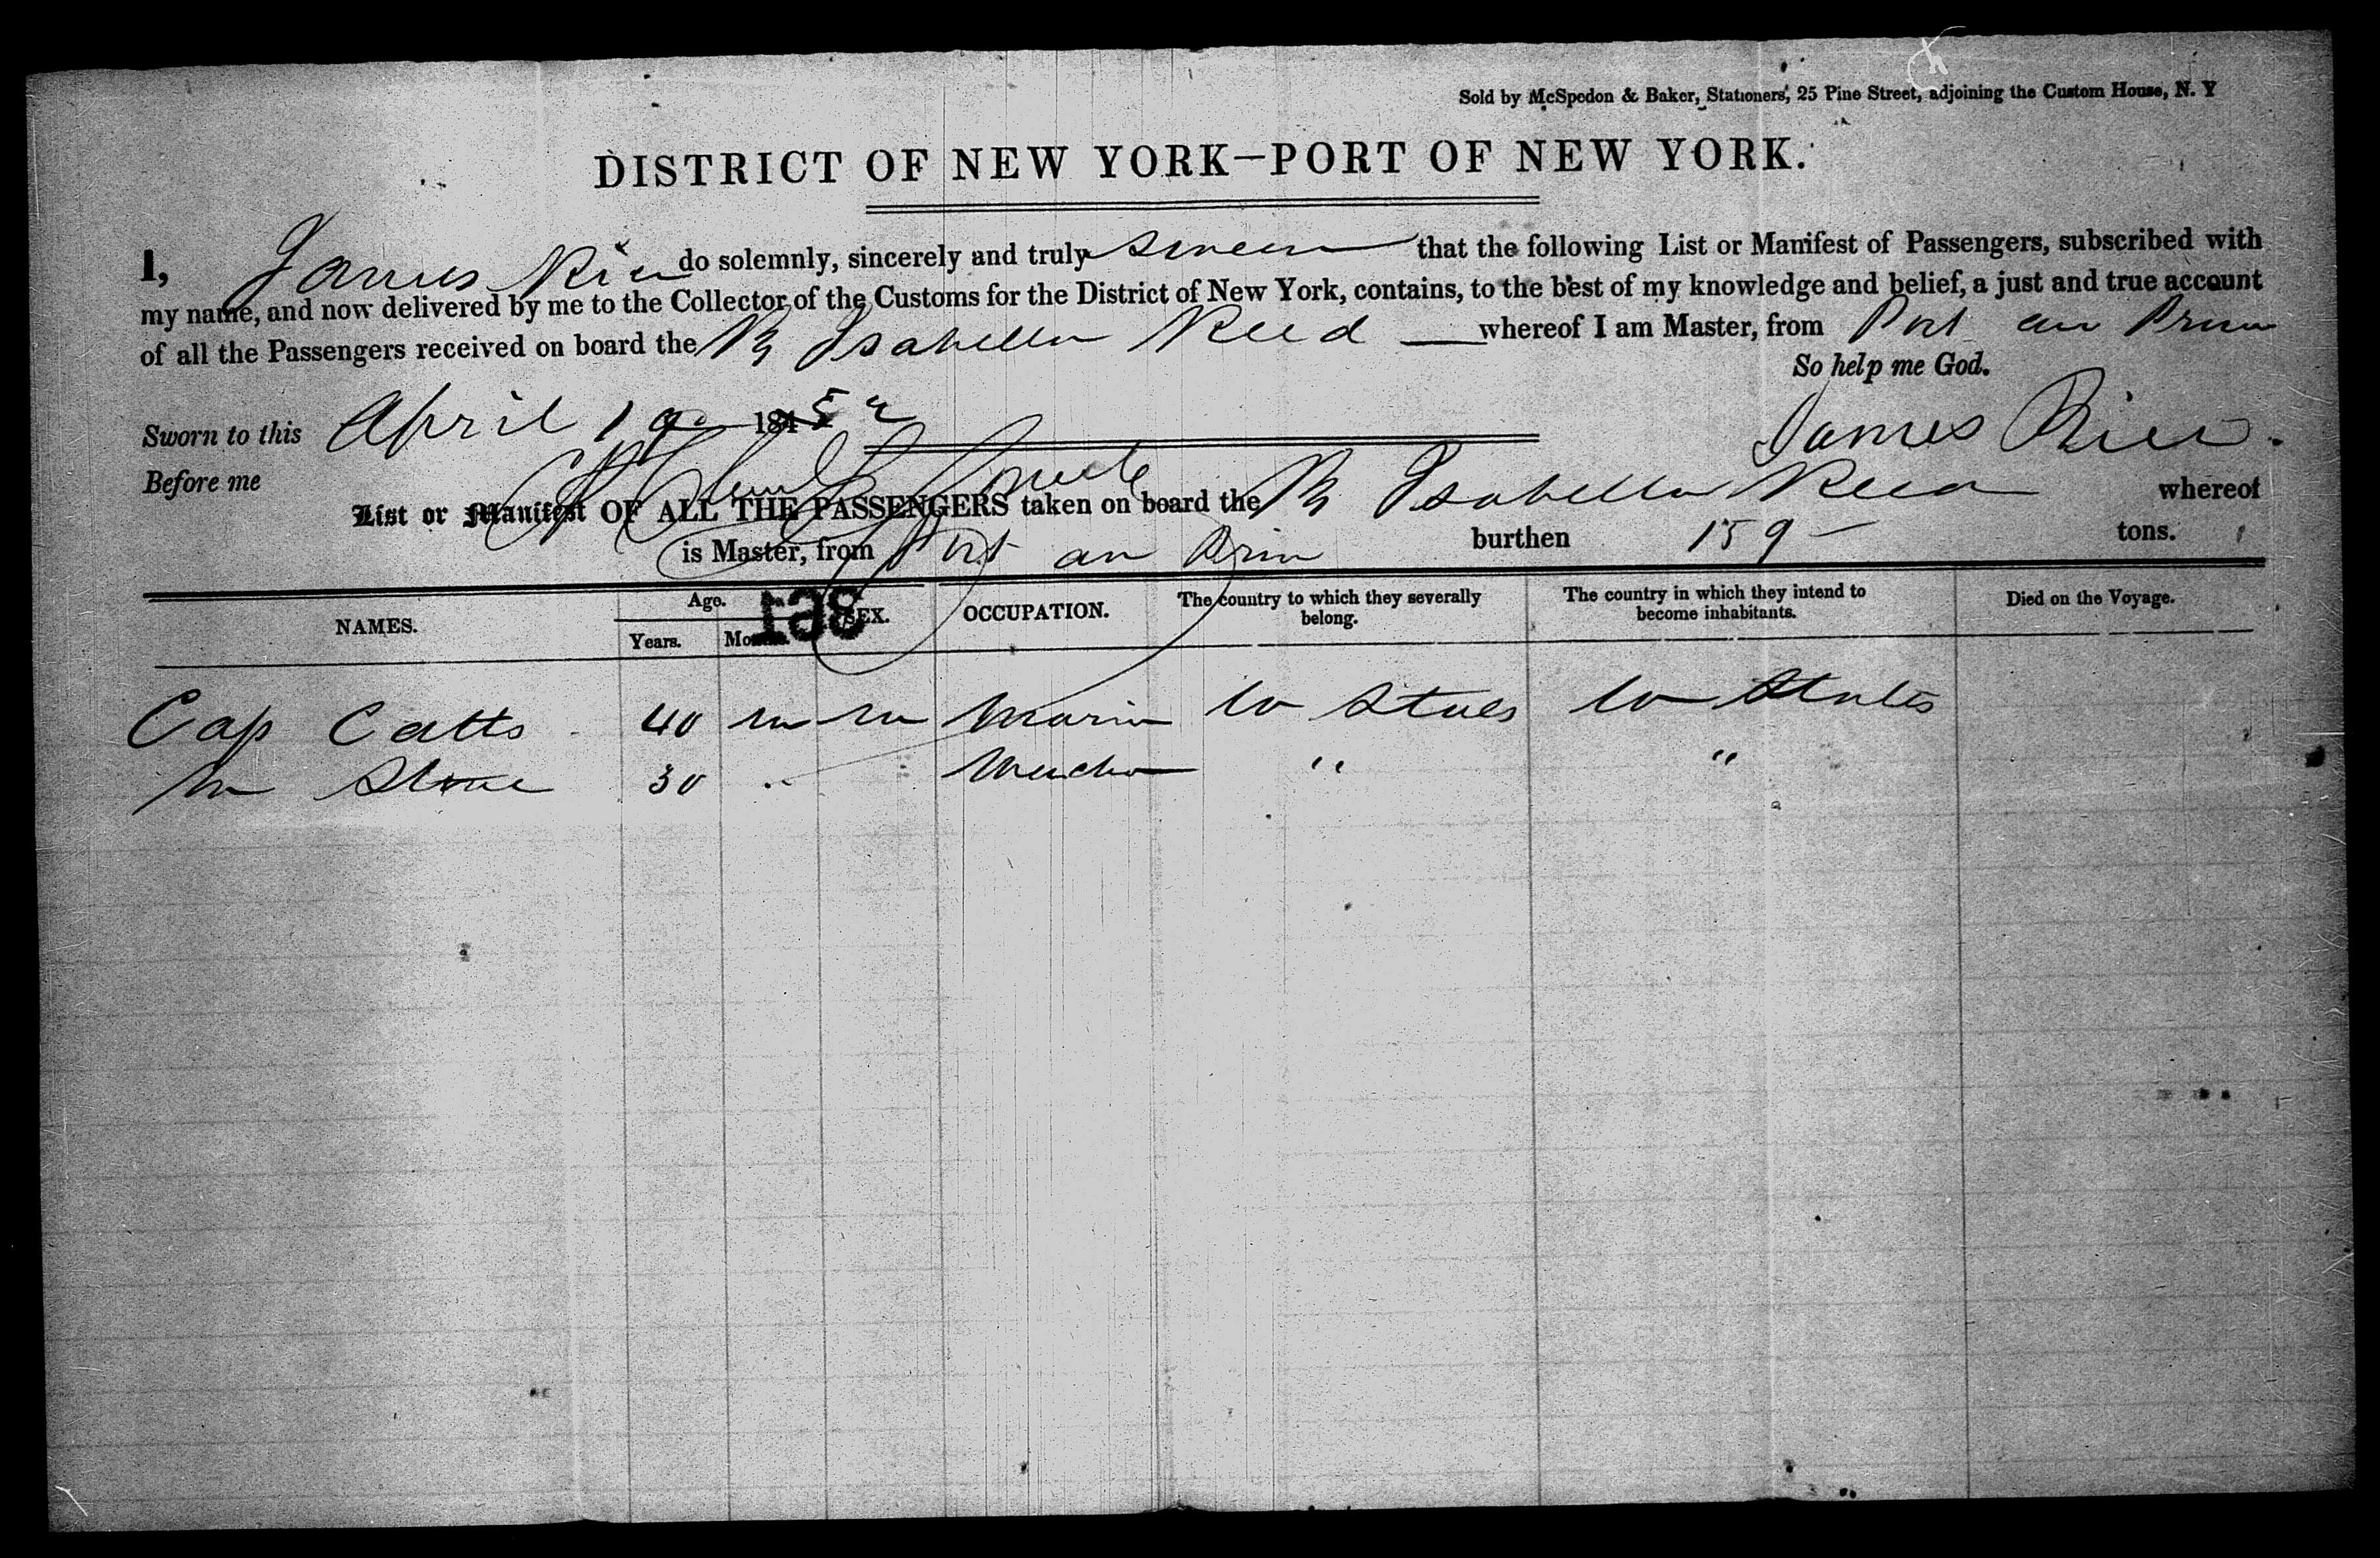 Sold by McSpedon & Baker, Stationers, 25 Pine Street, adjoining the Custom House, N. Y
DISTRICT OF NEW YORK—PORT OF NEW YORK.
I, James Rice do solemnly, sincerely and truly swear that the following List or Manifest of Passengers, subscribed with
my name, and now delivered by me to the Collector of the Customs for the District of New York, contains, to the best of my knowledge and belief, a just and true account
of all the Passengers received on board the Isabella Reed whereof I am Master, from Port au Prin
So help me God.
Sworn to this April 19 1852
James Rice.
Before me
List or Manifest OF ALL THE PASSENGERS taken on board the Isabella Reed whereof
is Master, from Port au Prin burthen 159 tons.
NAMES. Age. Years. Months. SEX. OCCUPATION. The country to which they severally belong. The country in which they intend to become inhabitants. Died on the Voyage.
198
Cap Catts 40 m m Marin U States U States
M Stone 30 " Mercha " "